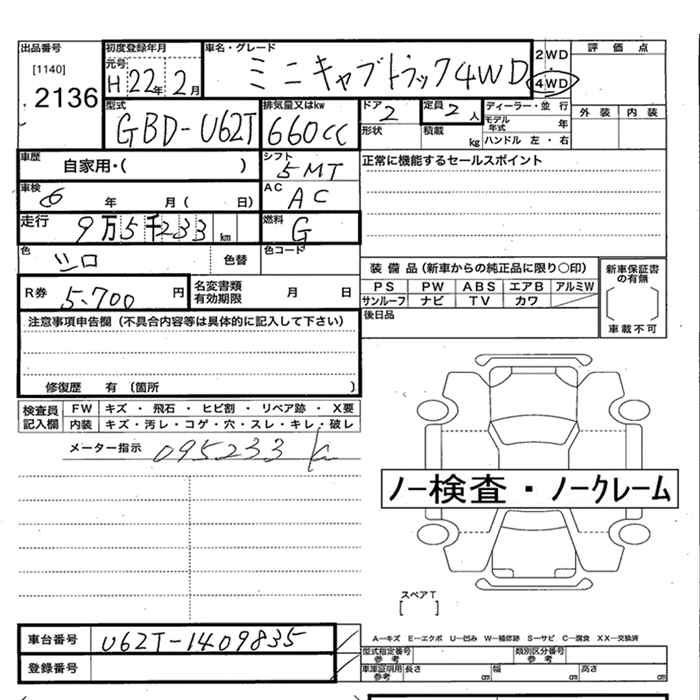 出品番号 初度登録年月 車名・グレード 2WD 評価点
[1140] 元号 H 22年 2月 ミニキャブトラック4WD 4WD
2136 外装 内装
型式 排気量又はkw ドア 2 定員 2 人 ディーラー・並行
GBD-U62T 660cc 形状 積載 kg モデル年式 年
ハンドル 左・右
車歴 自家用・( ) シフト 5MT 正常に機能するセールスポイント
車検 6年 月 ( 日) AC AC
走行 9万5千233 km 燃料 G
色 シロ 色替 色コード
装備品(新車からの純正品に限り○印) 新車保証書の有無
R券 5.700 円 名変書類有効期限 月 日 PS PW ABS エアB アルミW
サンルーフ ナビ TV カワ
注意事項申告欄(不具合内容等は具体的に記入して下さい) 後日品 車載不可
修復歴 有 (箇所 )
検査員記入欄 FW キズ・飛石・ヒビ割・リペア跡・X要
内装 キズ・汚レ・コゲ・穴・スレ・キレ・破レ
メーター指示 095233 k
ノー検査・ノークレーム
スペアT
[ ]
車台番号 U62T-1409835 A―キズ E―エクボ U―凹み W―補修跡 S―サビ C―腐食 XX―交換済
型式指定番号 参考 類別区分番号 参考
登録番号 車庫証明用 参考 長さ cm 幅 cm 高さ cm